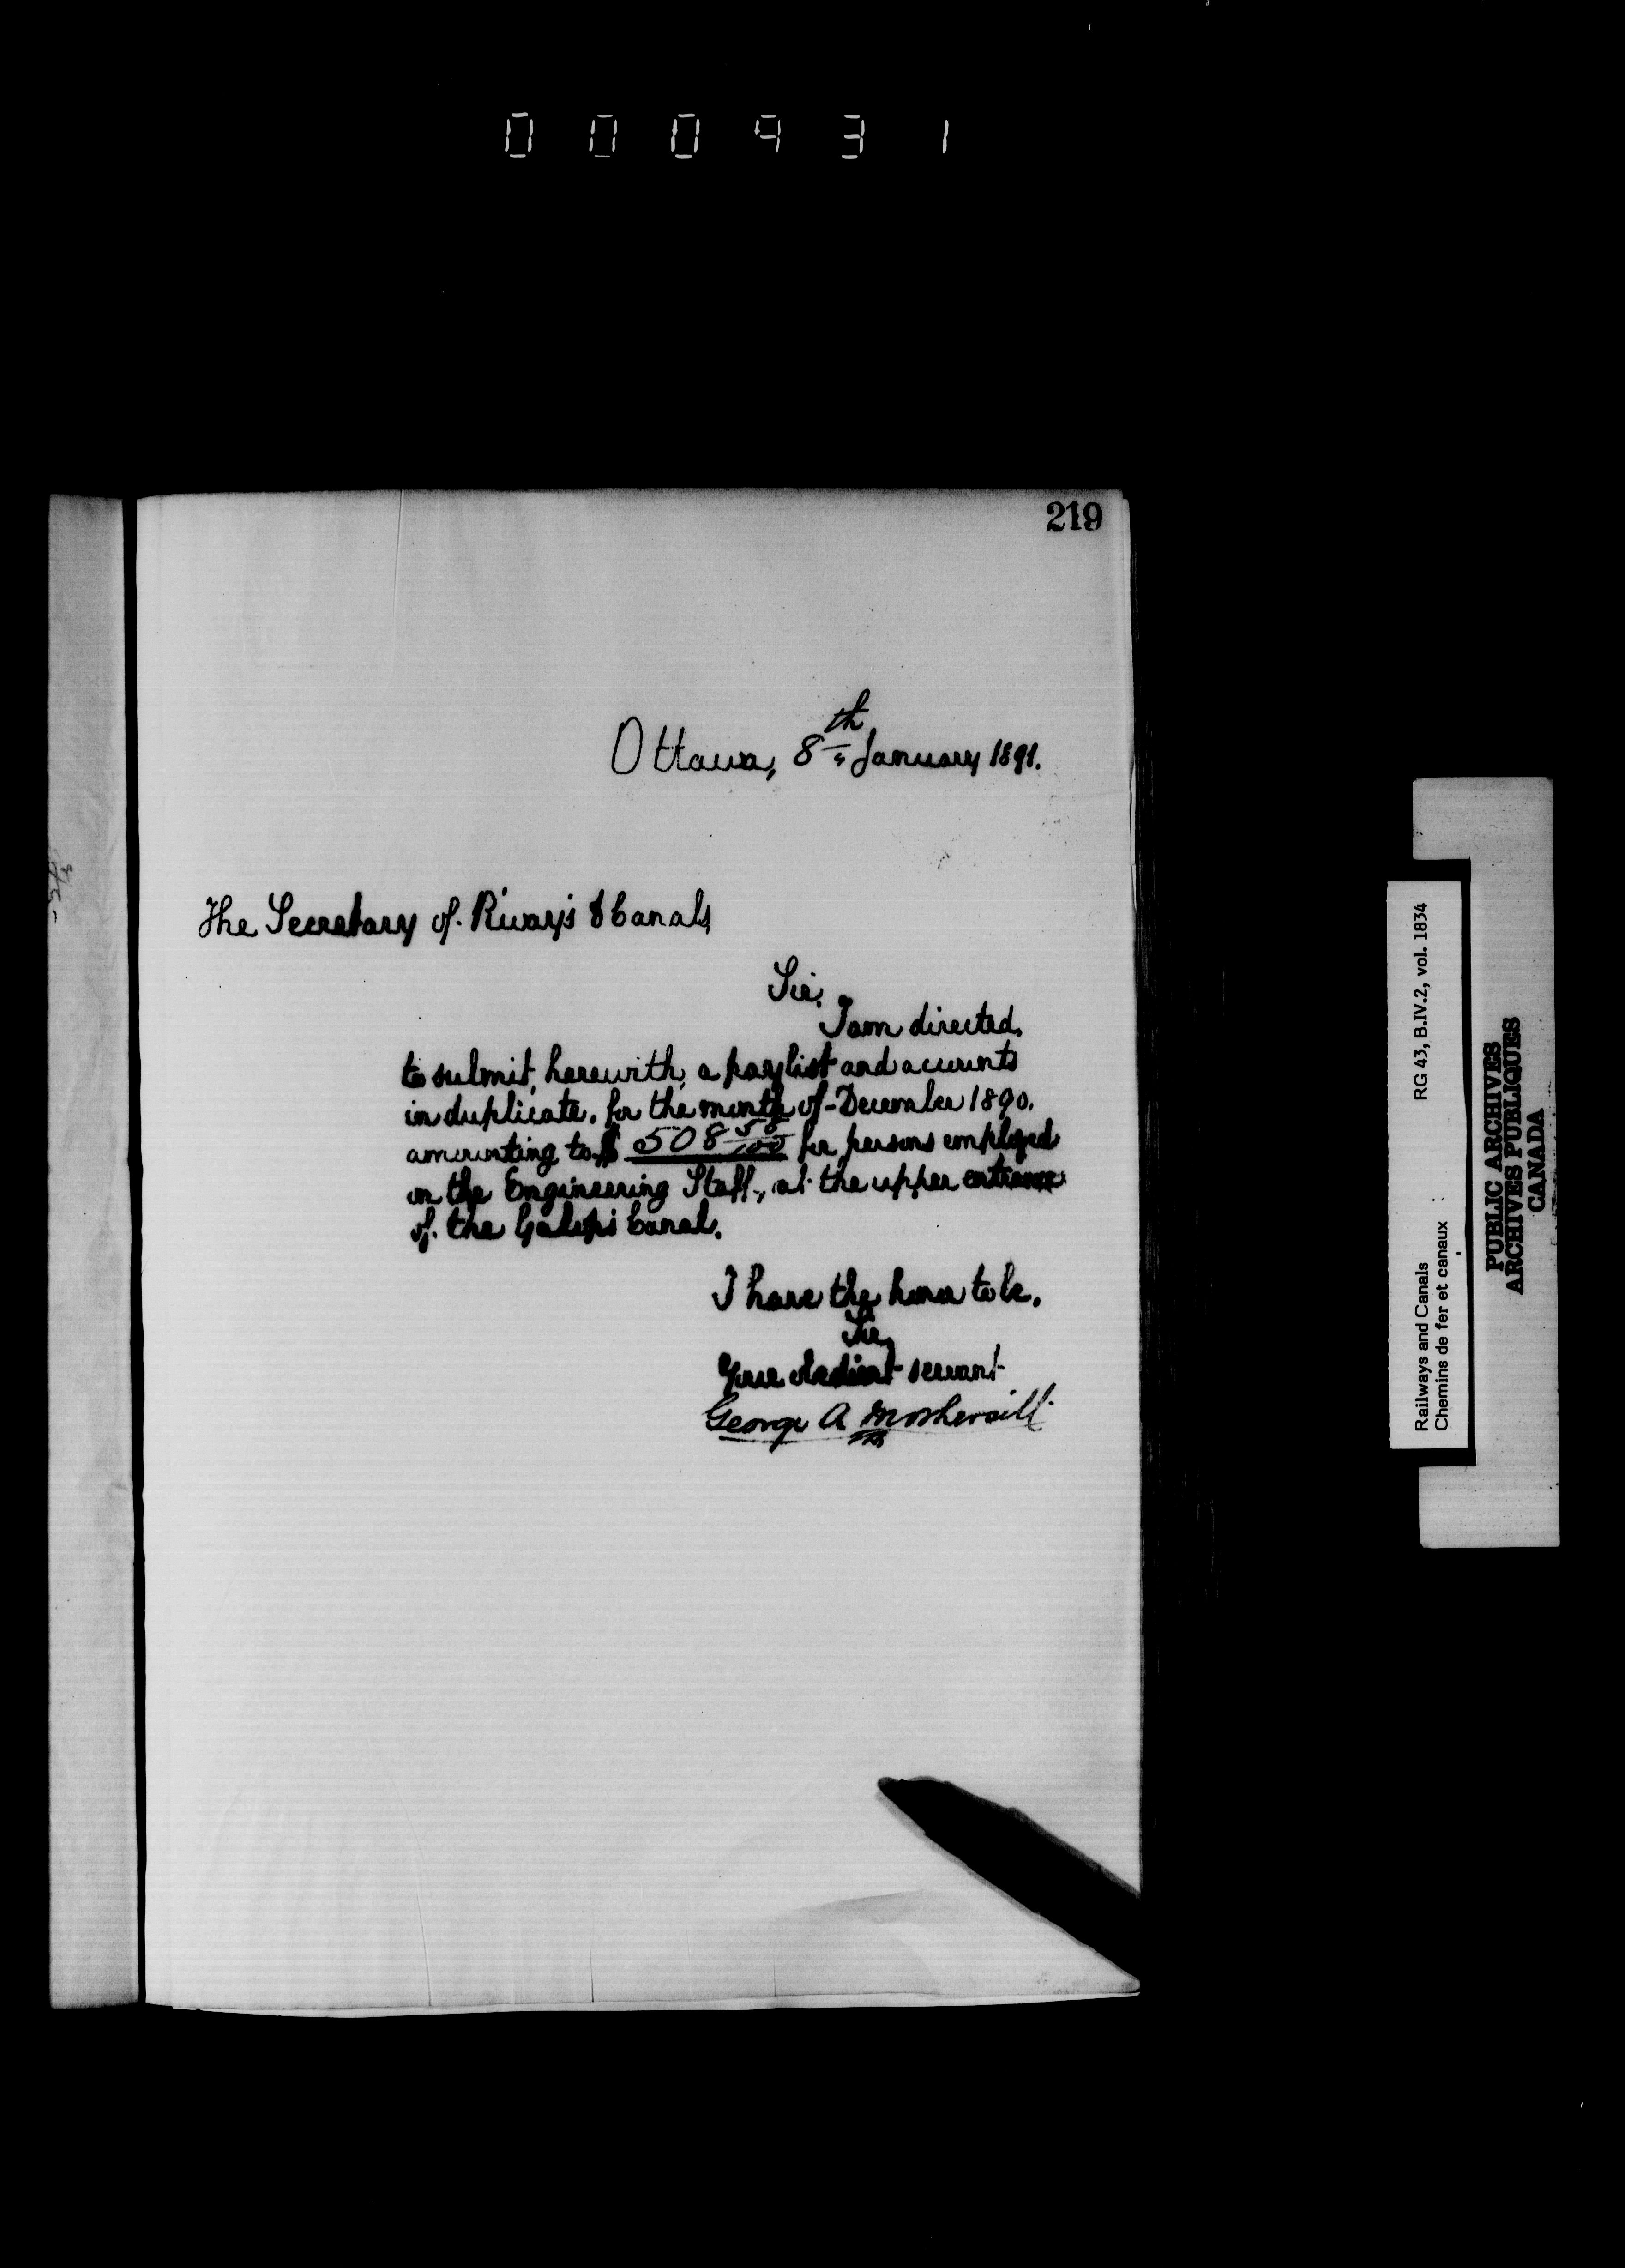 000931
219
Ottawa, 8th January 1891.
The Secretary of R'ways & Canals,
Sir,
I am directed,
to submit, herewith, a paylist and accounts
in duplicate, for the month of December 1890,
amounting to $ 508 50/100 for persons employed
on the Engineering Staff, at the upper entrance
of the Galops Canal.
I have the honor to be,
Sir,
Your obedient servant
George A Mothersill
Railways and Canals RG 43, B.IV.2, vol. 1834
Chemins de fer et canaux
PUBLIC ARCHIVES
ARCHIVES PUBLIQUES
CANADA